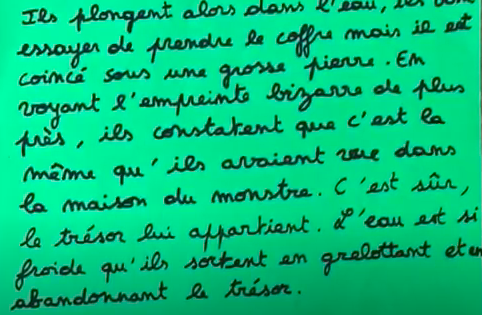 Ils plongent alors dans l'eau,
essayer de prendre le coffre mais il est
coincé sous une grosse pierre. En
voyant l'empreinte bizarre de plus
près, ils constatent que c'est la
même qu'ils avaient vue dans
la maison du monstre. C'est sûr,
le trésor lui appartient. L'eau est si
froide qu'ils sortent en grelottant et en
abandonnant le trésor.